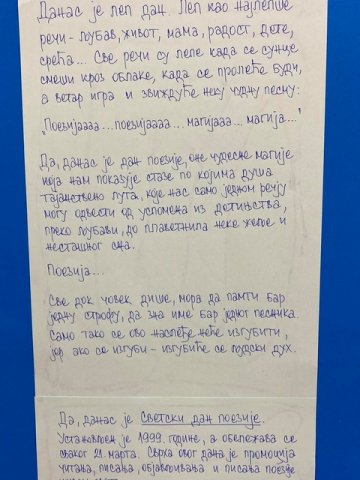 Данас је леп дан. Леп као најлепше
речи - љубав, живот, мама, радост, дете,
срећа... Све речи су лепе када се сунце
смеши кроз облаке, када се пролеће буди,
а ветар игра и звиждуће неку чудну песму:
„Поезијаааа... поезијаааа... магијааа... магија..."
Да, данас је дан поезије, оне чудесне магије
која нам показује стазе по којима душа
тајанствено лута, које нас само једном речју
могу одвести од успомена из детињства,
преко љубави, до плаветнила неке жеље и
несташног сна.
Поезија...
Све док човек дише, мора да памти бар
једну строфу, да зна име бар једног песника.
Само тако се ово наслеђе неће изгубити,
јер ако се изгуби - изгубиће се људски дух.
Да, данас је Светски дан поезије.
Установљен је 1999. године, а обележава се
сваког 21. марта. Сврха овог дана је промоција
читања, писања, објављивања и писања поезије